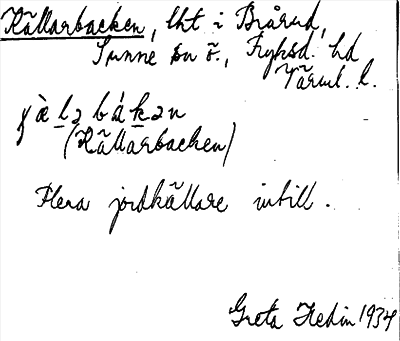 Källarbacken, lht i Brårud,
Sunne sn ö., Fryksd. hd
Värml. l.
(Källarbacken)
Flera jordkällare intill.
Greta Hedin 1934